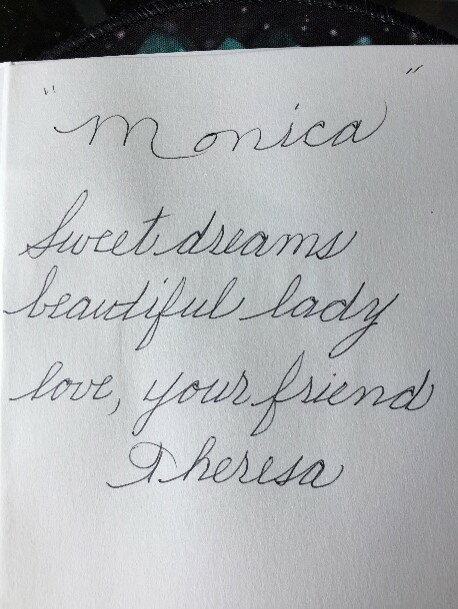 "Monica"
Sweet dreams
beautiful lady
love, your friend
Theresa